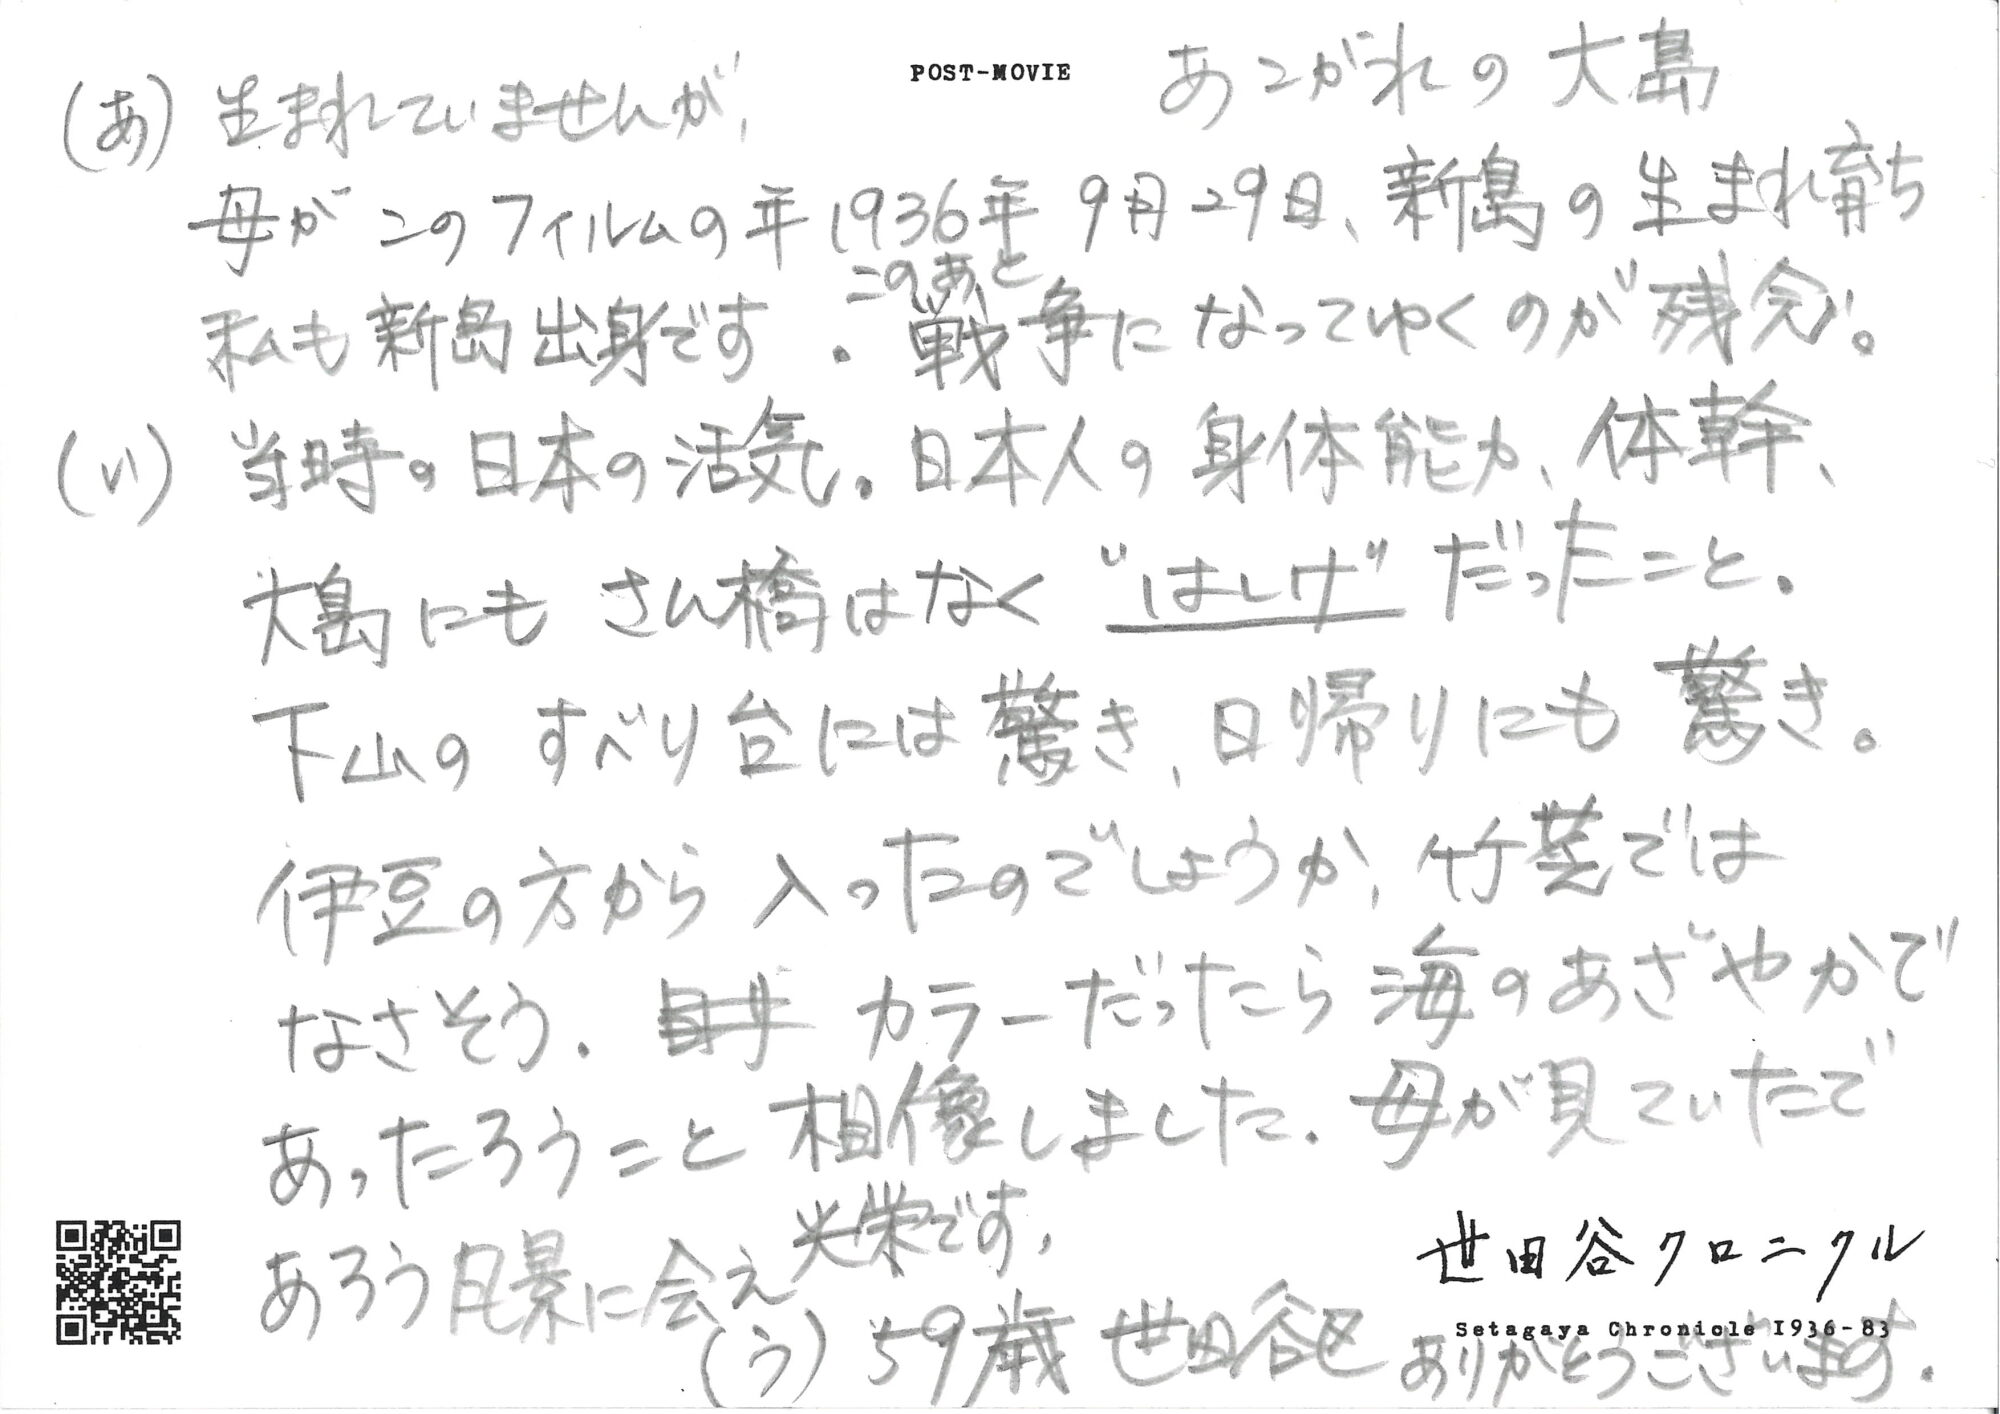 POST-MOVIE
あこがれの大島
(あ) 生まれていませんが、
母がこのフィルムの年1936年9月29日、新島の生まれ育ち
私も新島出身です。このあと戦争になってゆくのが残念。
(い) 当時の日本の活気。日本人の身体能力、体幹、
大島にもさん橋はなく"はしけ"だったこと。
下山のすべり台には驚き、日帰りにも驚き。
伊豆の方から入ったのでしょうか、竹芝では
なさそう。カラーだったら海のあざやかで
あったろうこと想像しました。母が見ていたで
あろう風景に会え光栄です。
(う) 59歳 世田谷区 ありがとうございます。
世田谷クロニクル
Setagaya Chronicle 1936-83